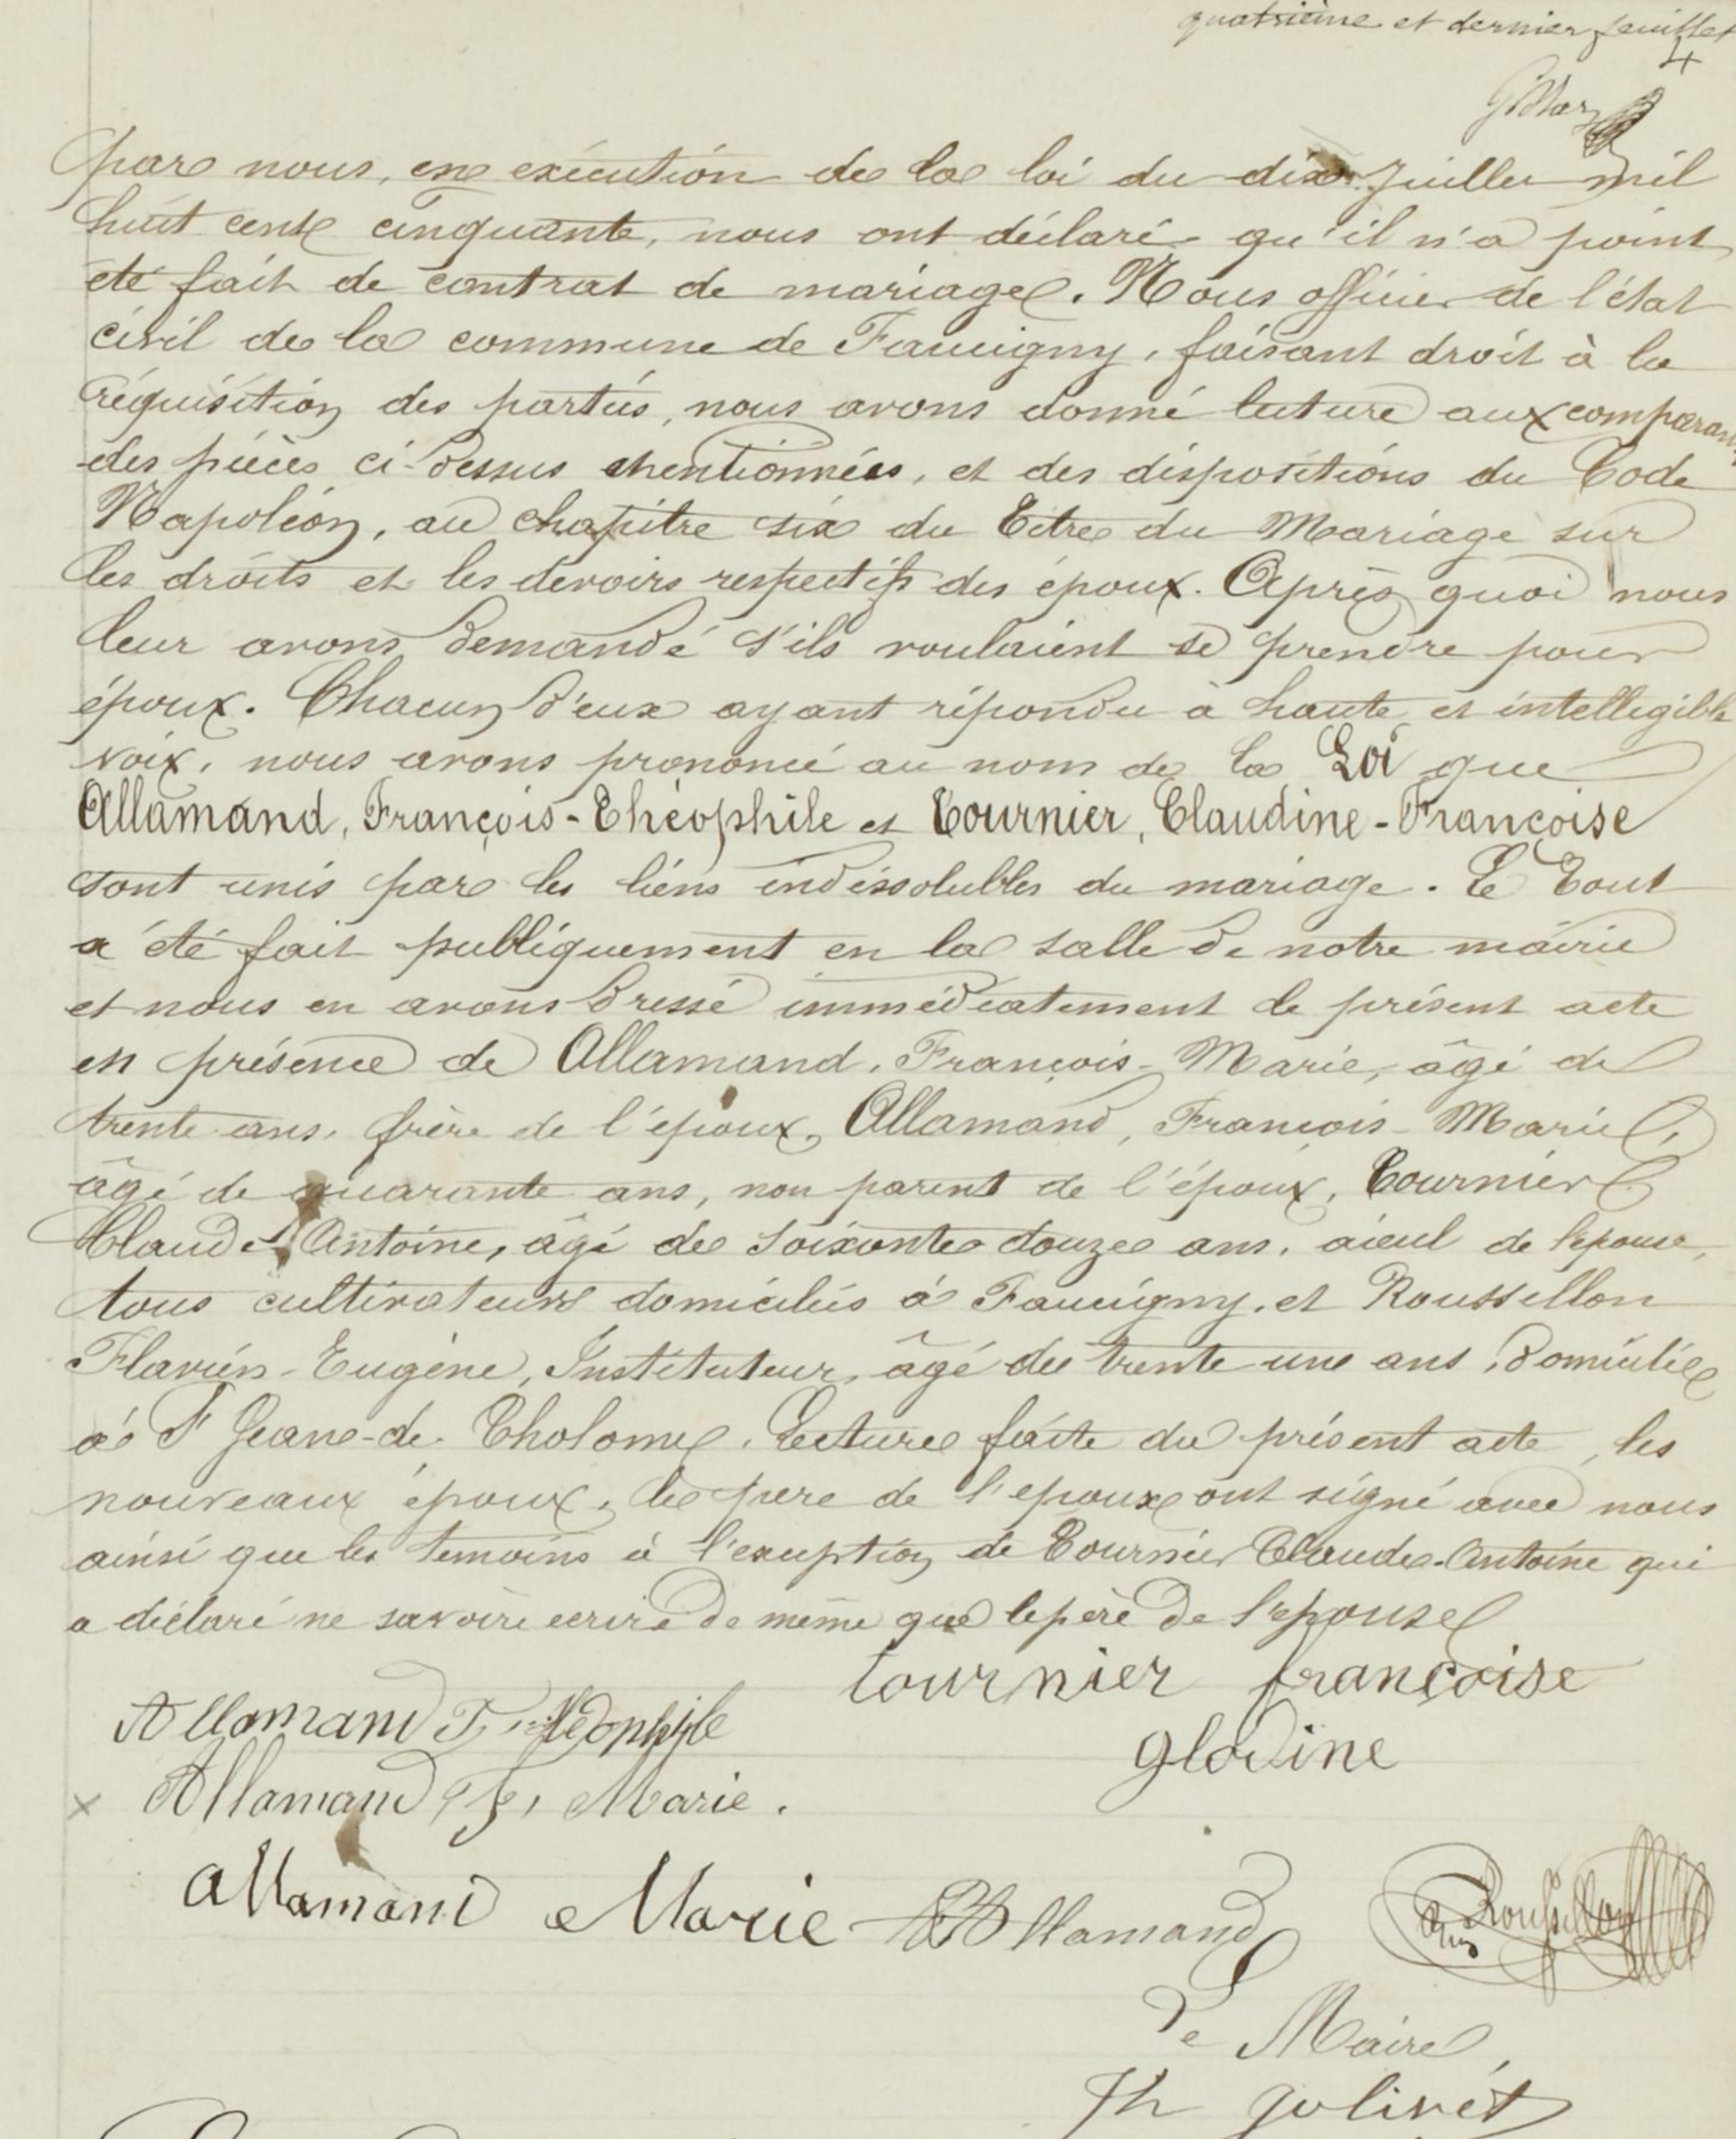 quatrième et dernier feuillet
4
par nous, en exécution de la loi du dix Juillet mil
huit cent cinquante, nous ont déclaré qu'il n'a point
été fait de contrat de mariage. Nous officier de l'état
civil de la commune de Faucigny, faisant droit à la
réquisition des parties, nous avons donné lecture aux comparants
des pièces ci-dessus mentionnées, et des dispositions du Code
Napoléon, au chapitre six du Titre du Mariage sur
les droits et les devoirs respectifs des époux. Après quoi nous
leur avons demandé s'ils voulaient se prendre pour
époux. Chacun d'eux ayant répondu à haute et intelligible
voix, nous avons prononcé au nom de la Loi que
Allamand, François-Théophile et Tournier, Claudine-Françoise
sont unis par les liens indissolubles du mariage. Le Tout
a été fait publiquement en la salle de notre mairie
et nous en avons dressé immédiatement le présent acte
en présence de Allamand, François-Marie, âgé de
trente ans, frère de l'époux, Allamand, François-Marie,
âgé de quarante ans, non parent de l'époux, Tournier
Claude Antoine, âgé de soixante douze ans, aieul de l'epouse,
tous cultivateurs domiciliés à Faucigny, et Roussillon
Flavien-Eugène, Instituteur, âgé de trente une ans, domicilié
à St Jean-de-Tholome. Lecture faite du présent acte, les
nouveaux époux, le père de l'epoux ont signé avec nous
ainsi que les temoins à l'exception de Tournier Claude-Antoine qui
a déclaré ne savoir ecrire de même que le père de l'epouse
Tournier françoise
glodine
Allamand F. Théophile
x Allamand F, Marie.
allamand Marie Allamand Roussillon
Le Maire,
Th Jolivet